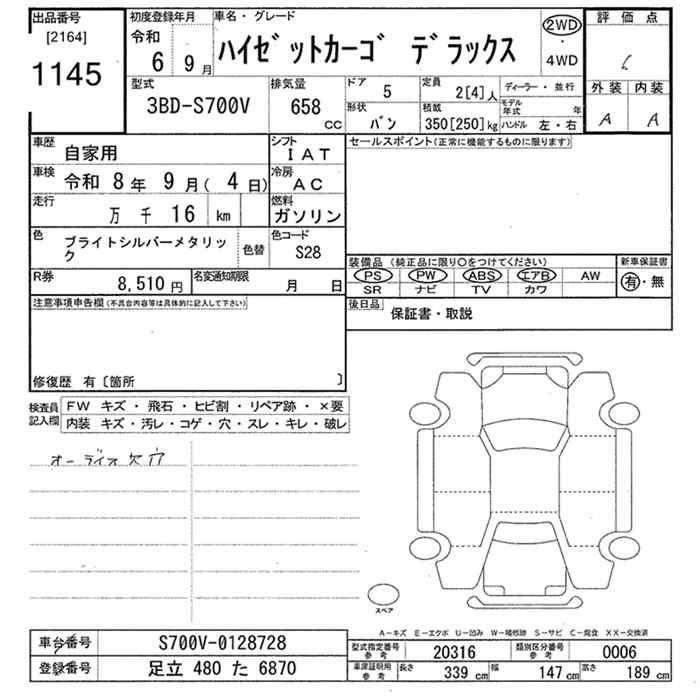 出品番号
[2164]
1145
初度登録年月
令和
6 9 月
車名・グレード
ハイゼットカーゴ デラックス
2WD
・
4WD
評価点
6
外装 内装
A A
型式
3BD-S700V
排気量
658
CC
ドア
5
定員
2[4]人
形状
バン
積載
350[250]kg
ディーラー・並行
モデル年式 年
ハンドル 左・右
車歴
自家用
シフト
IAT
車検
令和 8年 9月( 4日)
冷房
AC
走行
万 千 16 km
燃料
ガソリン
色
ブライトシルバーメタリック
色替
色コード
S28
R券
8,510 円
名変通知期限
月 日
セールスポイント(正常に機能するものに限ります)
装備品 (純正品に限り○をつけてください)
PS PW ABS エアB AW
SR ナビ TV カワ
新車保証書
有・無
後日品
保証書・取説
注意事項申告欄(不具合内容等は具体的に記入して下さい)
修復歴 有〔箇所 〕
検査員記入欄
FW キズ・飛石・ヒビ割・リペア跡・×要
内装 キズ・汚レ・コゲ・穴・スレ・キレ・破レ
オーディオ欠穴
スペア
A−キズ E−エクボ U−凹み W−補修跡 S−サビ C−腐食 XX−交換済
車台番号
S700V-0128728
登録番号
足立 480 た 6870
型式指定番号
参考
20316
類別区分番号
参考
0006
車庫証明用
参考
長さ 339 cm
幅 147 cm
高さ 189 cm